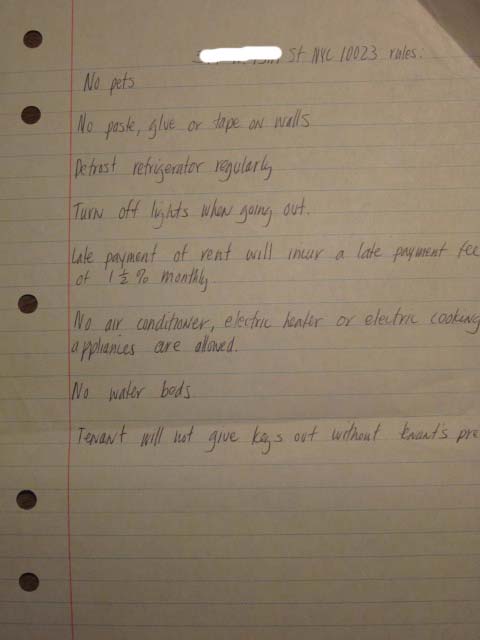 St NYC 10023 rules.
No pets
No paste, glue or tape on walls
Defrost refrigerator regularly
Turn off lights when going out.
Late payment of rent will incur a late payment fee
of 1 ½ % monthly
No air conditioner, electric heater or electric cooking
appliances are allowed.
No water beds
Tenant will not give keys out without tenant's pre